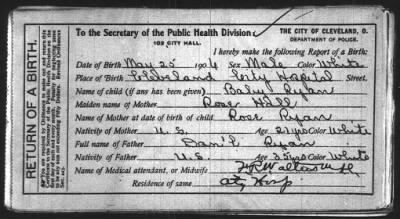 To the Secretary of the Public Health Division
THE CITY OF CLEVELAND, O.
DEPARTMENT OF POLICE.
102 CITY HALL.
I hereby make the following Report of a Birth:
Date of Birth May 25 1904 Sex Male Color White
Place of Birth Cleveland City Hospital Street.
Name of child (if any has been given) Baby Ryan
Maiden name of Mother Rose Hall
Name of Mother at date of birth of child Rose Ryan
Nativity of Mother U.S. Age 21 yrs Color White
Full name of Father Dan'l Ryan
Nativity of Father U.S. Age 35 yrs Color White
Name of Medical attendant, or Midwife
Residence of same City Hosp.
RETURN OF A BIRTH.